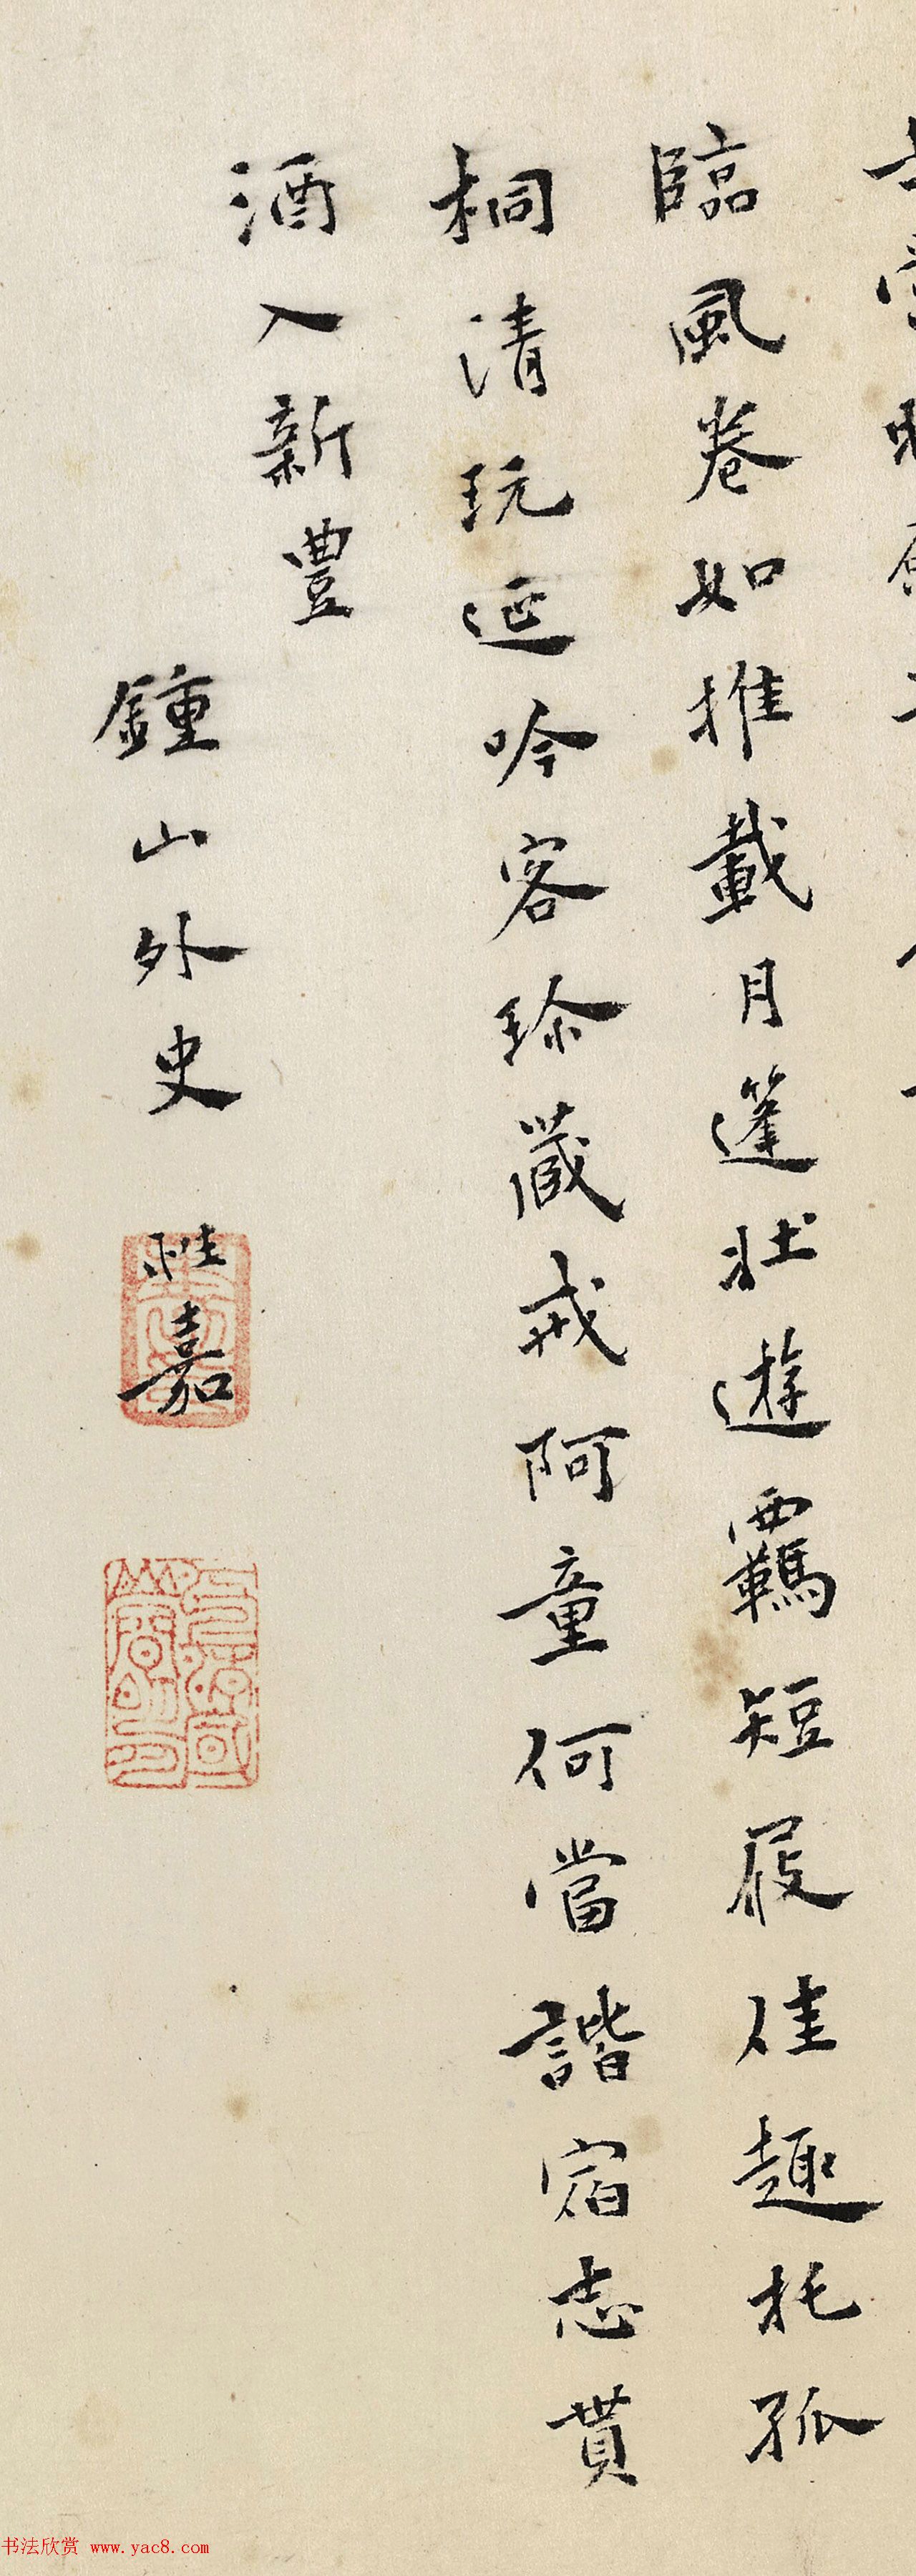 臨風卷如推載月篷壯遊羈短屐佳趣托孤
桐清玩延吟客珍藏戒阿童何當諧宿志貰
酒入新豐
鍾山外史
嘉
书法欣赏 www.yac8.com